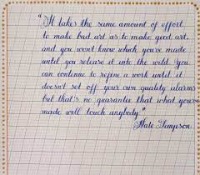 "It takes the same amount of effort
to make bad art as to make good art,
and you won't know which you've made
until you release it into the world. You
can continue to refine a work until it
doesn't set off your own quality alarms
but that's no guarantee that what you've
made will touch anybody."